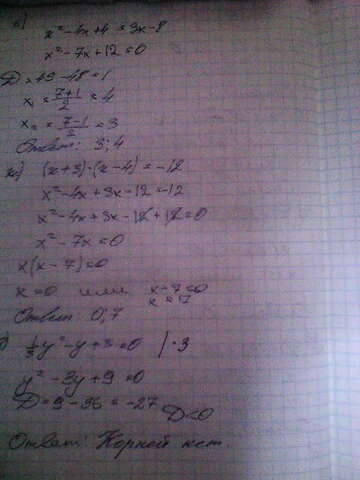 x² - 4x + 4 = 3x - 8
x² - 7x + 12 = 0
D = 49 - 48 = 1
x₁ = (7+1)/2 = 4
x₂ = (7-1)/2 = 3
Ответ: 3; 4
ж) (x + 3)·(x - 4) = -12
x² - 4x + 3x - 12 = -12
x² - 4x + 3x - 12 + 12 = 0
x² - 7x = 0
x(x - 7) = 0
x = 0 или x - 7 = 0
x = 7
Ответ 0; 7
) 1/3 y² - y + 3 = 0 | · 3
y² - 3y + 9 = 0
D = 9 - 36 = -27
D < 0
Ответ: Корней нет.